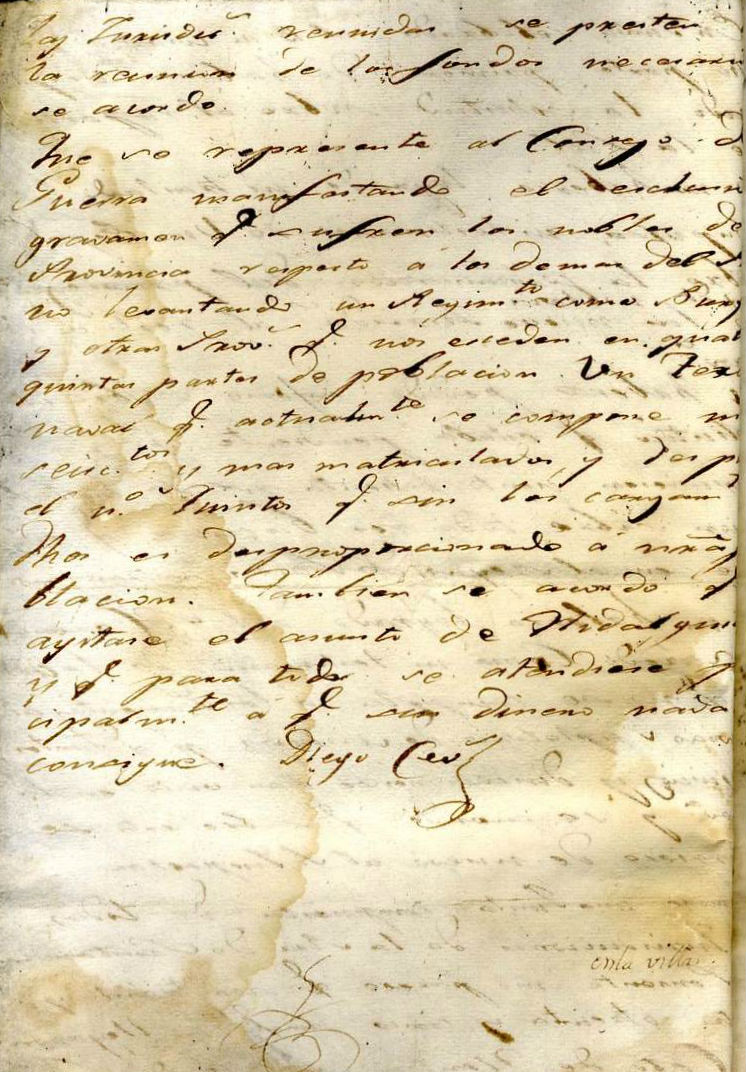 las Jurisdic.s reunidas se presten
la reunion de los fondos necesari
se acorde.
Que se represente al Consejo de
Guerra manifestando el
gravamen q.e sufren los nobles de
Provincia respecto á los demas del
no levantando un Regim.to como Burg
y otras Prov.s q.e nos eseden en quat
quintas partes de poblacion. Un Ter
naval q.e actualm.te se compone
seisc.tos y mas matriculados, y
el n.o Quintos q.e sin los
dhos es desproporcionado á nrã
blacion. Tambien se acordo q
ajitase el asunto de Hidalgui
y q.e para todo se atendiese p
cipalm.te á q.e sin dinero nada
consigue. Diego
enla villa